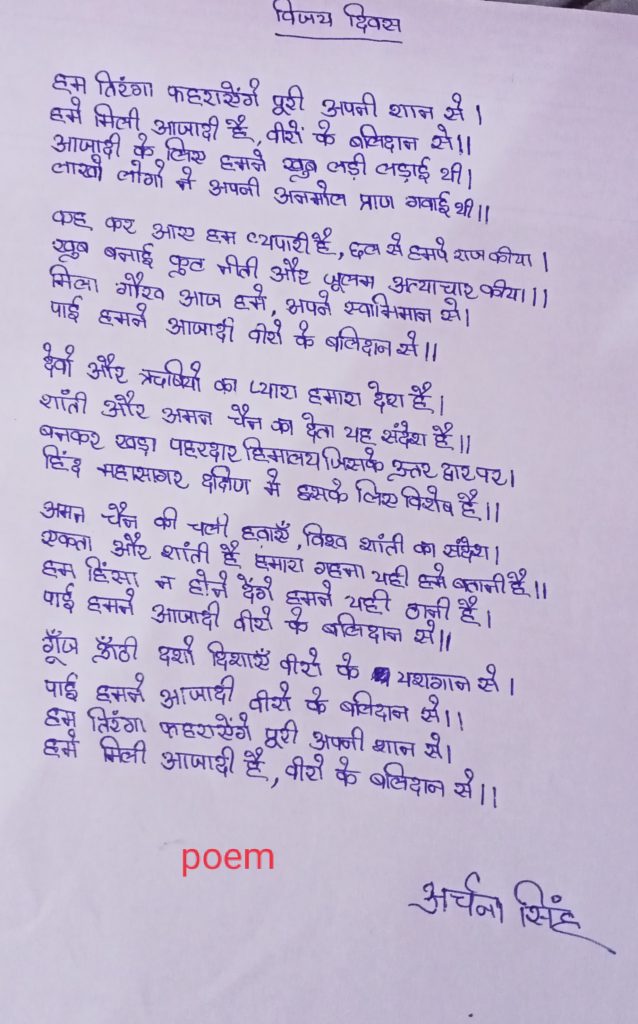 विजय दिवस
हम तिरंगा फहरायेंगे पूरी अपनी शान से।
हमे मिली आजादी है, वीरों के बलिदान से॥
आजादी के लिए हमने खुब लड़ी लड़ाई थी।
लाखो लोगो ने अपनी अनमोल प्राण गवाई थी॥
कह कर आए हम व्यपारी है, छल से हमपे राज कीया।
खुब बनाई कुट नीती और जुलम अत्याचार कीया॥।
मिला गौरव आज हमे, अपने स्वाभिमान से।
पाई हमने आजादी वीरो के बलिदान से॥
देवो और ऋषियो का प्यारा हमारा देश है।
शांती और अमन चैन का देता यह संदेश है॥
बनकर खड़ा पहरदार हिमालय जिसके उत्तर द्वार पर।
हिंद महासागर दक्षिण मे इसके लिए विशेष है॥
अमन चैन की चली हवाएँ, विश्व शांती का संदेश।
एकता और शांती है हमारा गहना यही हमे बतानी है॥
हम हिंसा न होने देंगे हमने यही ठानी है।
पाई हमने आजादी वीरो के बलिदान से॥
गूँज ऊँठी दशो दिशाएँ वीरो के यशगान से।
पाई हमने आजादी वीरो के बलिदान से॥
हम तिरंगा फहरायेंगे पूरी अपनी शान से।
हमे मिली आजादी है, वीरो के बलिदान से॥
poem
अर्चना सिंह